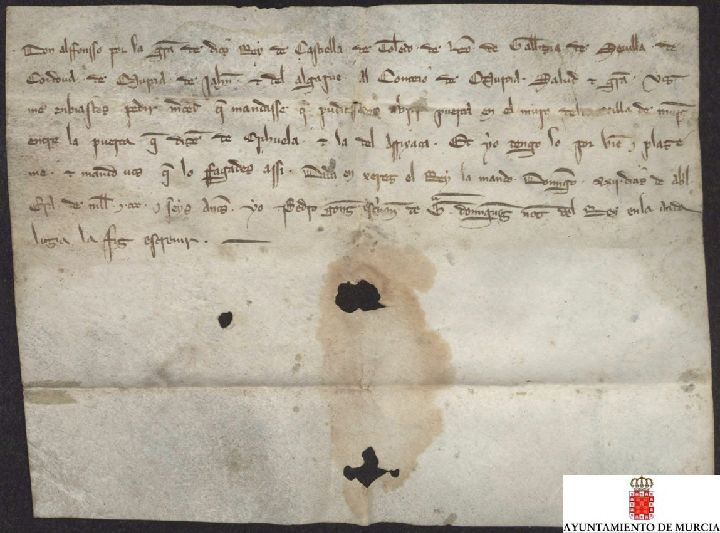 Don alffonso por la gra de dios Rey de Castiella de Toledo de Leon de Gallizia de Seuilla de
Cordoua de Murçia de Jahen t del Algarue Al Conceio de Murçia Salud t gra
me enbiastes pedir merçet q mandasse q pudiessedes abrir puerta en el muro de la uilla de murçia
entre la puerta q dizen de Orihuela t la del Arrixaca Et yo tengo lo por bien y plaze
me t mando uos q lo fagades assi Dada en xerez el Rey la mando Domingo dias de abril
Era de mill y y seys Annos yo Pedro gomez de Domingez del Rey en la Anda
luzia la fiz escreuir
AYUNTAMIENTO DE MURCIA